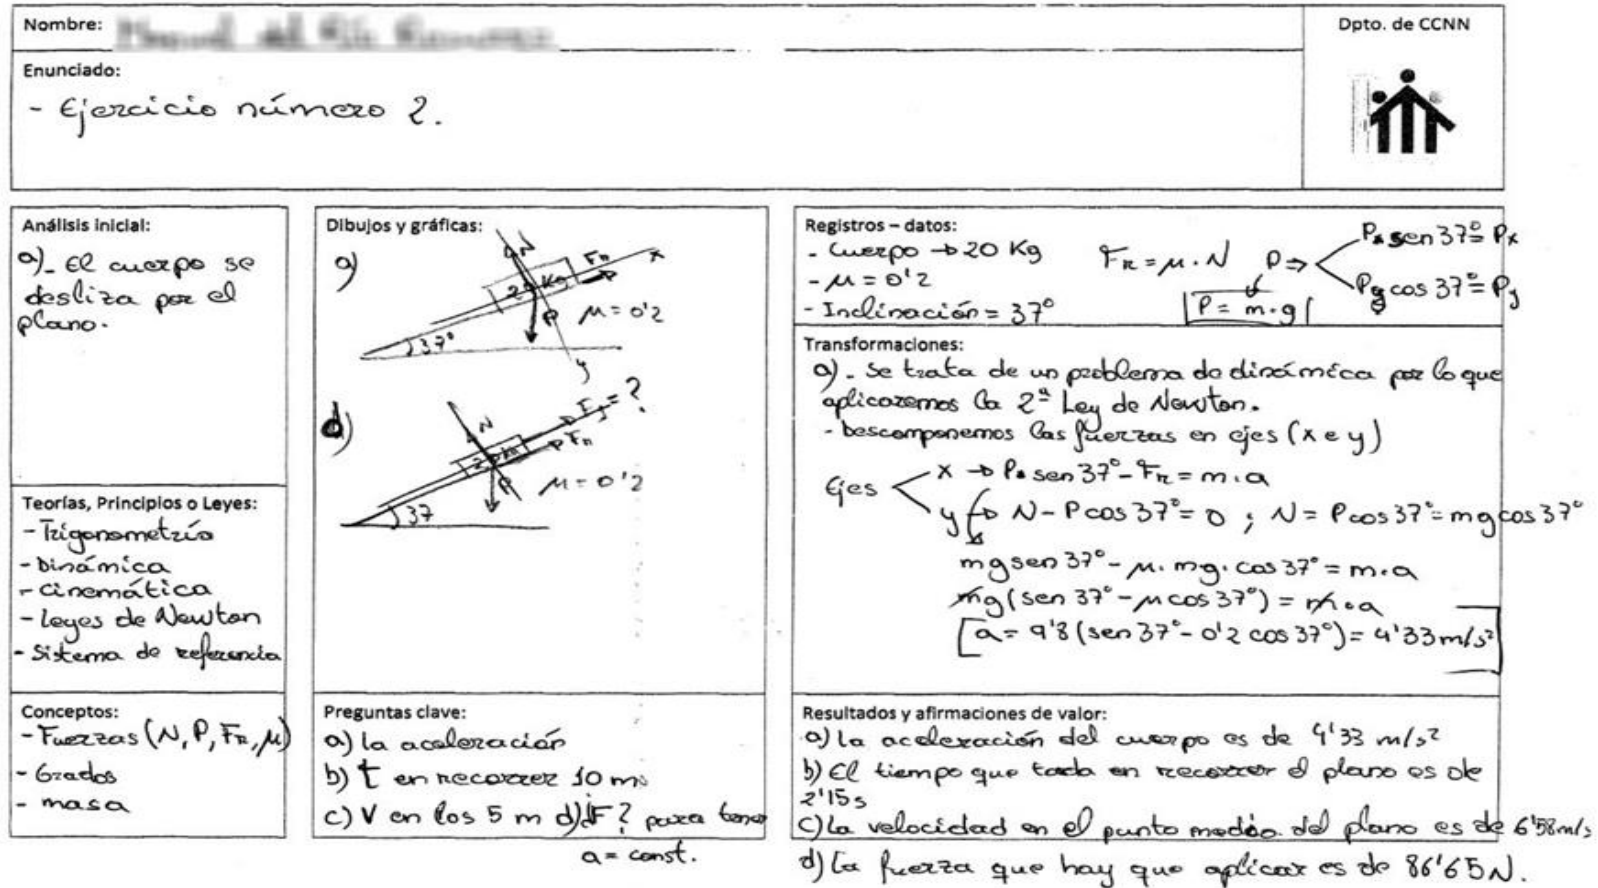 Nombre:
Dpto. de CCNN
Enunciado:
- Ejercicio número 2.
Análisis inicial:
a)- El cuerpo se
desliza por el
plano.
Teorías, Principios o Leyes:
- Trigonometría
- Dinámica
- Cinemática
- Leyes de Newton
- Sistema de referencia
Conceptos:
- Fuerzas (N, P, FR, μ)
- Grados
- masa
Dibujos y gráficas:
a)
N
FR
x
20 Kg
P
μ = 0'2
37°
y
d)
N
F = ?
FR
P
μ = 0'2
37
Preguntas clave:
a) la aceleración
b) t en recorrer 10 m
c) V en los 5 m d) ¿F? para tener
a = const.
Registros – datos:
- Cuerpo → 20 Kg
- μ = 0'2
- Inclinación = 37°
FR = μ · N
P ⇒
P sen 37° = Px
P cos 37° = Py
P = m · g
Transformaciones:
a)- Se trata de un problema de dinámica por lo que
aplicaremos la 2ª Ley de Newton.
- Descomponemos las fuerzas en ejes (x e y)
Ejes
x → P · sen 37° - FR = m · a
y → N - P cos 37° = 0 ; N = P cos 37° = m g cos 37°
m g sen 37° - μ · m g · cos 37° = m · a
m g (sen 37° - μ cos 37°) = m · a
a = 9'8 (sen 37° - 0'2 cos 37°) = 4'33 m/s²
Resultados y afirmaciones de valor:
a) La aceleración del cuerpo es de 4'33 m/s²
b) El tiempo que tarda en recorrer el plano es de
2'15 s
c) La velocidad en el punto medio del plano es de 6'58 m/s
d) La fuerza que hay que aplicar es de 86'65 N.